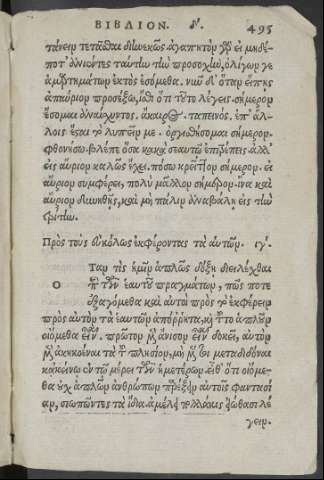 ΒΙΒΛΙΟΝ. δ'. 495
τάνειν τετάσθαι διηνεκῶς ἀγαπητὸν γὰρ εἰ μηδέ-
ποτ' ἀνιέντες ταύτην τὴν προσοχὴν, ὀλίγων γε
ἁμαρτημάτων ἐκτὸς ἐσόμεθα. νῦν δ' ὅταν εἴπῃς
ἀπαύριον προσέξω, ἴσθι ὅτι τοῦτο λέγεις. σήμερον
ἔσομαι ἀναίσχυντος. ἄκαιρος. ταπεινός. ἐπ' ἄλ-
λοις ἔσαι τὸ λυπεῖν με. ὀργισθήσομαι σήμερον.
φθονήσω. βλέπε ὅσα κακὰ σεαυτῷ ἐπιτρέπεις. ἀλλ'
εἰς αὔριον καλῶς ἔχει. πόσῳ κρεῖττον σήμερον. εἰ
αὔριον συμφέρει, πολὺ μᾶλλον σήμερον. ἵνα καὶ
αὔριον δυνηθῇς, καὶ μὴ πάλιν ἀναβάλῃ εἰς τὴν
τρίτην.
Πρὸς τοὺς εὐκόλως ἐκφέροντας τὰ αὑτῶν. ιγ'.
Ο Ταν τὶς ἡμῖν ἁπλῶς δόξῃ διειλέχθαι
περὶ τῶν ἑαυτοῦ πραγμάτων, πῶς ποτε
ἐξαγόμεθα καὶ αὐτοὶ πρὸς τὸ ἐκφέρειν
πρὸς αὐτὸν τὰ ἑαυτῶν ἀπόῤῥητα, καὶ τοῦτο ἁπλοῦν
οἰόμεθα εἶναι. πρῶτον μὲν ὅτι ἄνισον εἶναι δοκεῖ, αὐτὸν
μὲν ἀκηκοέναι τὰ τοῦ πλησίον, μὴ μέντοι μεταδιδόναι
κἀκείνῳ ἐν τῷ μέρει τῶν ἡμετέρων. εἶθ' ὅτι οἰόμε-
θα οὐχ ἁπλῶν ἀνθρώπων παρέξειν αὐτοῖς φαντασί
αν, σιωπῶντες τὰ ἴδια. ἀμέλει πολλάκις εἰώθασι λέ
γειν.